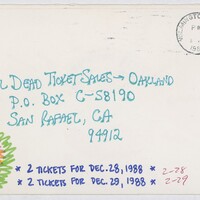 DEAD TICKET SALES → OAKLAND
P.O. BOX C-S8190
SAN RAFAEL, CA
94912
* 2 TICKETS FOR DEC. 28, 1988 * 2-28
* 2 TICKETS FOR DEC. 29, 1988 * 2-29